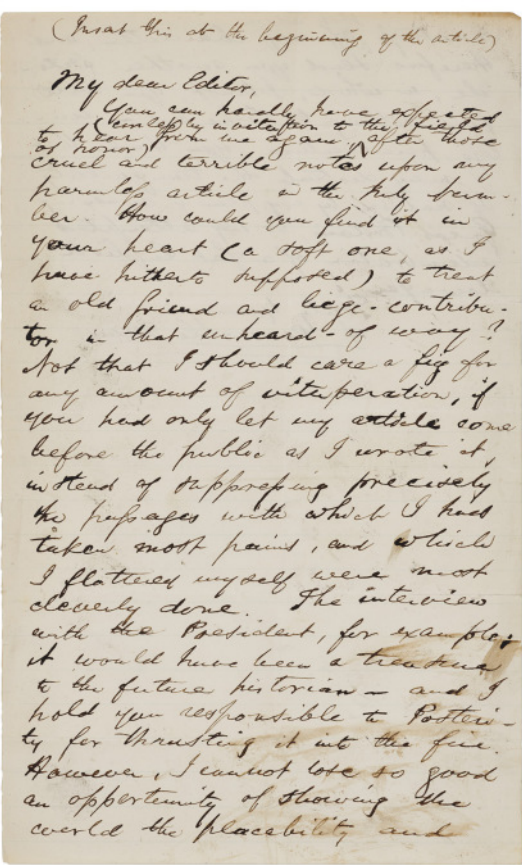 (Insert this at the beginning of the article)
My dear Editor,
You can hardly have expected
to hear from me again (unless by invitation to the field
of honor) after those
cruel and terrible notes upon my
harmless article in the July Num-
ber. How could you find it in
your heart (a soft one, as I
have hitherto supposed) to treat
an old friend and liege-contribu-
tor in that unheard-of way?
Not that I should care a fig for
any amount of vituperation, if
you had only let my article come
before the public as I wrote it,
instead of suppressing precisely
the passages with which I had
taken most pains, and which
I flattered myself were most
cleverly done. The interview
with the President, for example:
it would have been a treasure
to the future historian – and I
hold you responsible to Posteri-
ty for thrusting it into the fire.
However, I cannot lose so good
an opportunity of showing the
world the placability and